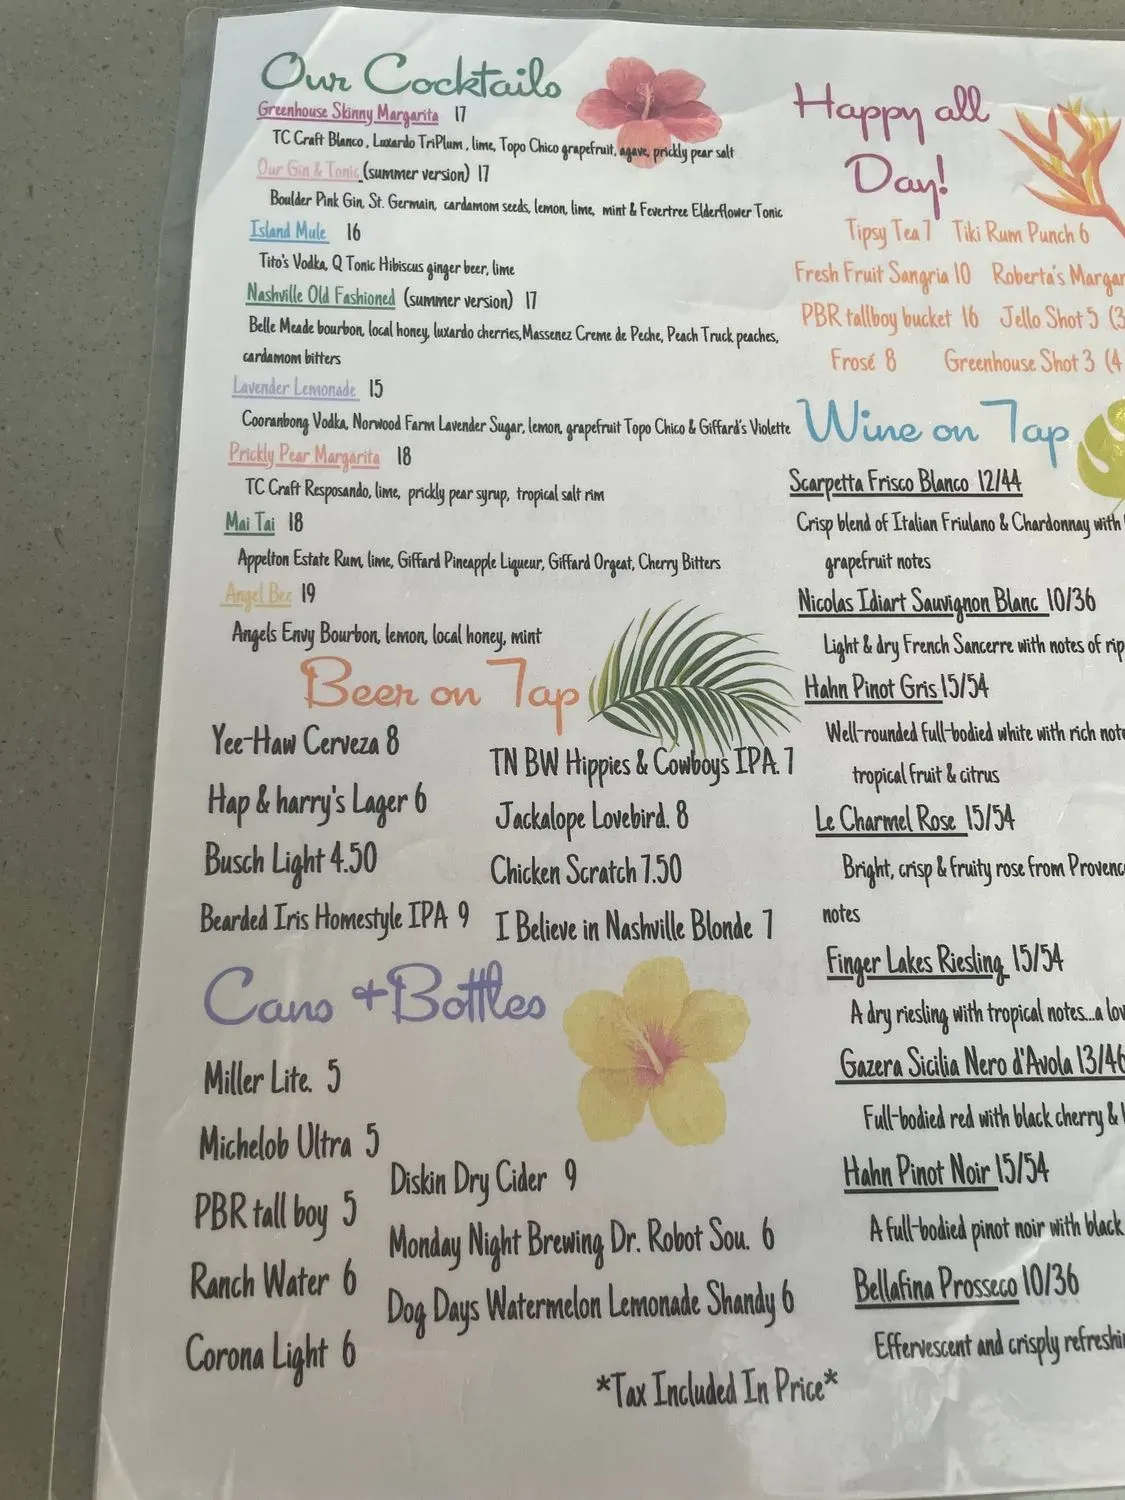 Our Cocktails
Greenhouse Skinny Margarita 17
TC Craft Blanco, Luxardo TriPlum, lime, Topo Chico grapefruit, agave, prickly pear salt
Our Gin & Tonic (summer version) 17
Boulder Pink Gin, St. Germain, cardamom seeds, lemon, lime, mint & Fevertree Elderflower Tonic
Island Mule 16
Tito's Vodka, Q Tonic Hibiscus ginger beer, lime
Nashville Old Fashioned (summer version) 17
Belle Meade bourbon, local honey, luxardo cherries, Massenez Creme de Peche, Peach Truck peaches,
cardamom bitters
Lavender Lemonade 15
Cooranbong Vodka, Norwood Farm Lavender Sugar, lemon, grapefruit Topo Chico & Giffard's Violette
Prickly Pear Margarita 18
TC Craft Resposando, lime, prickly pear syrup, tropical salt rim
Mai Tai 18
Appelton Estate Rum, lime, Giffard Pineapple Liqueur, Giffard Orgeat, Cherry Bitters
Angel Bee 19
Angels Envy Bourbon, lemon, local honey, mint
Beer on Tap
Yee-Haw Cerveza 8
Hap & harry's Lager 6
Busch Light 4.50
Bearded Iris Homestyle IPA 9
TN BW Hippies & Cowboys IPA. 7
Jackalope Lovebird. 8
Chicken Scratch 7.50
I Believe in Nashville Blonde 7
Cans + Bottles
Miller Lite. 5
Michelob Ultra 5
PBR tall boy 5
Ranch Water 6
Corona Light 6
Diskin Dry Cider 9
Monday Night Brewing Dr. Robot Sou. 6
Dog Days Watermelon Lemonade Shandy 6
*Tax Included In Price*
Happy all
Day!
Tipsy Tea 7 Tiki Rum Punch 6
Fresh Fruit Sangria 10 Roberta's Margar
PBR tallboy bucket 16 Jello Shot 5 (3
Frosé 8 Greenhouse Shot 3 (4
Wine on Tap
Scarpetta Frisco Blanco 12/44
Crisp blend of Italian Friulano & Chardonnay with
grapefruit notes
Nicolas Idiart Sauvignon Blanc 10/36
Light & dry French Sancerre with notes of rip
Hahn Pinot Gris 15/54
Well-rounded full-bodied white with rich note
tropical fruit & citrus
Le Charmel Rose 15/54
Bright, crisp & fruity rose from Provenc
notes
Finger Lakes Riesling 15/54
A dry riesling with tropical notes...a lov
Gazera Sicilia Nero d'Avola 13/46
Full-bodied red with black cherry &
Hahn Pinot Noir 15/54
A full-bodied pinot noir with black
Bellafina Prosseco 10/36
Effervescent and crisply refreshi